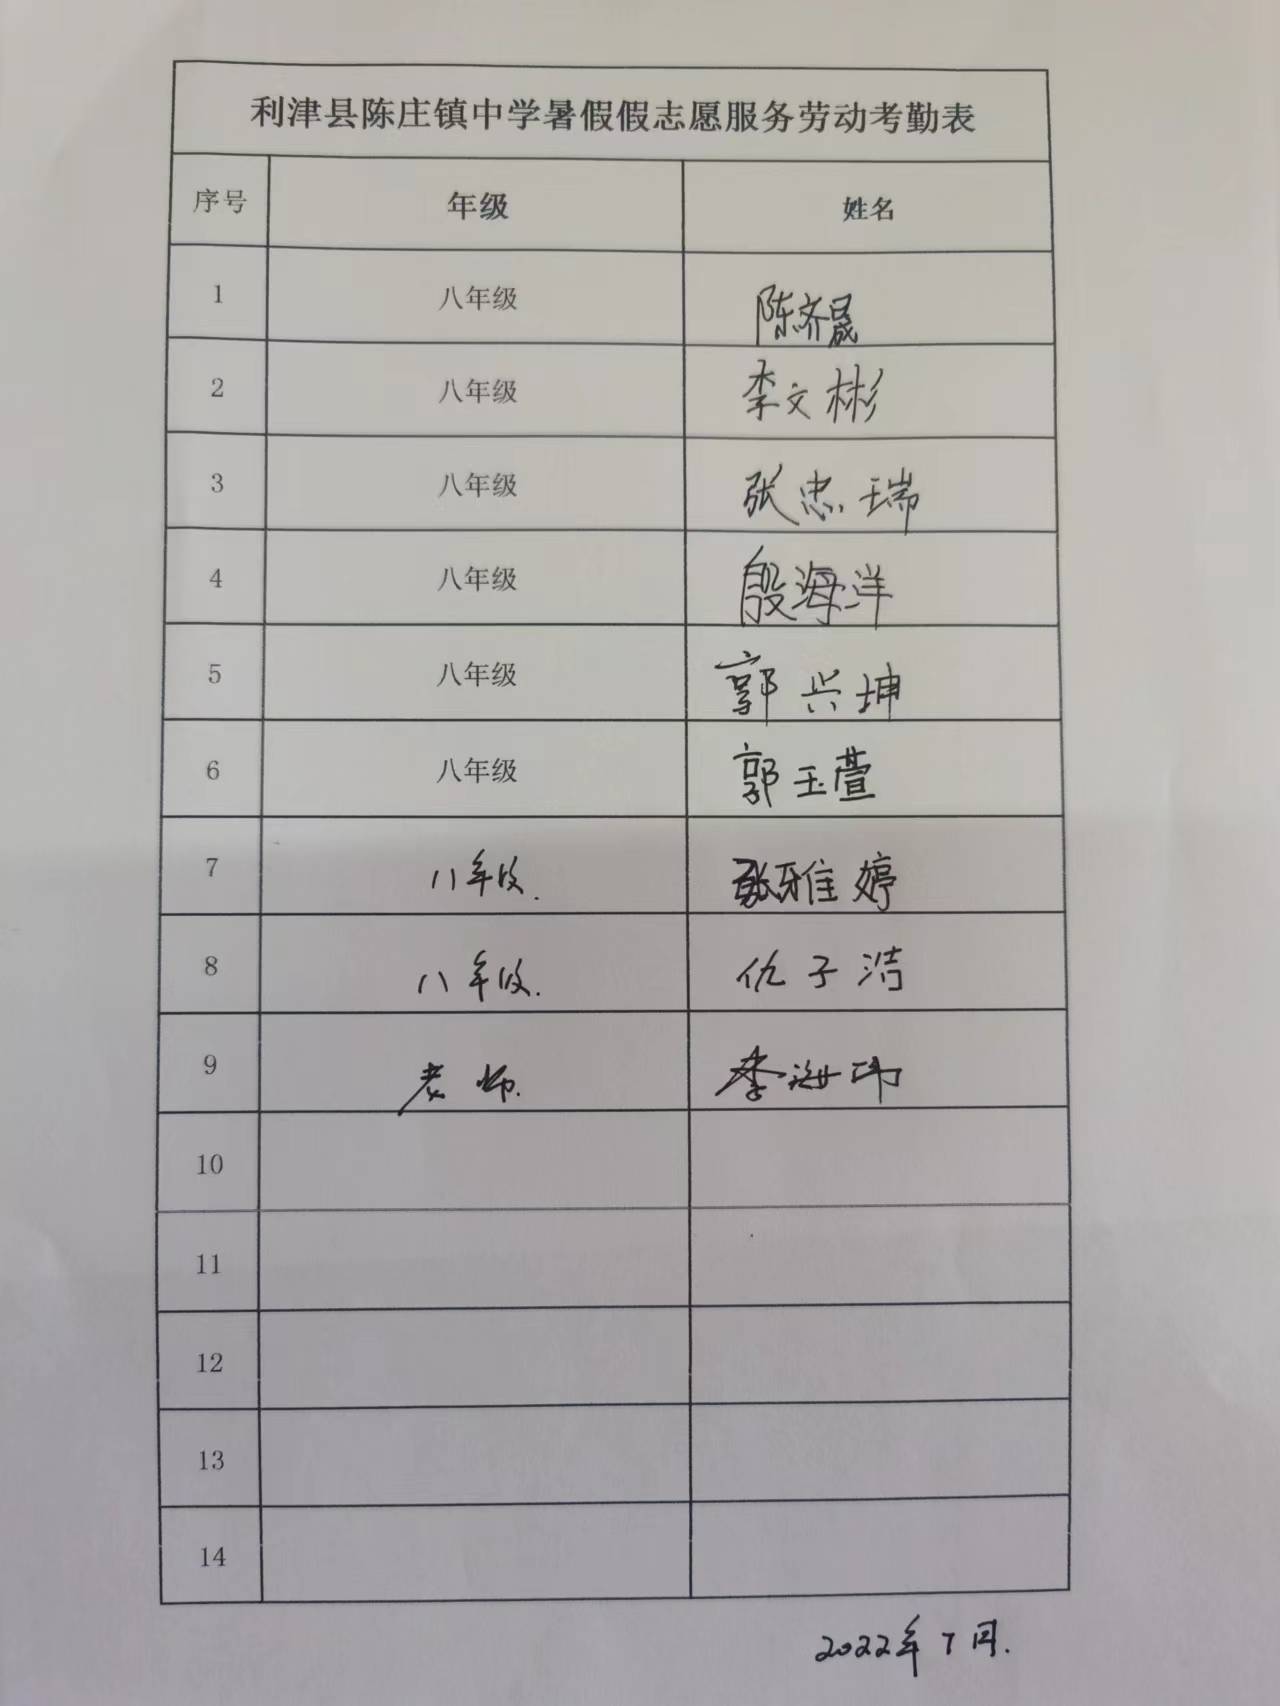 利津县陈庄镇中学暑假假志愿服务劳动考勤表
序号 年级 姓名
1 八年级 陈济晟
2 八年级 李文彬
3 八年级 张忠瑞
4 八年级 殷海洋
5 八年级 郭兴坤
6 八年级 郭玉萱
7 八年级. 张雅婷
8 八年级. 仇子洁
9 老师. 李海玮
10
11
12
13
14
2022年7月.